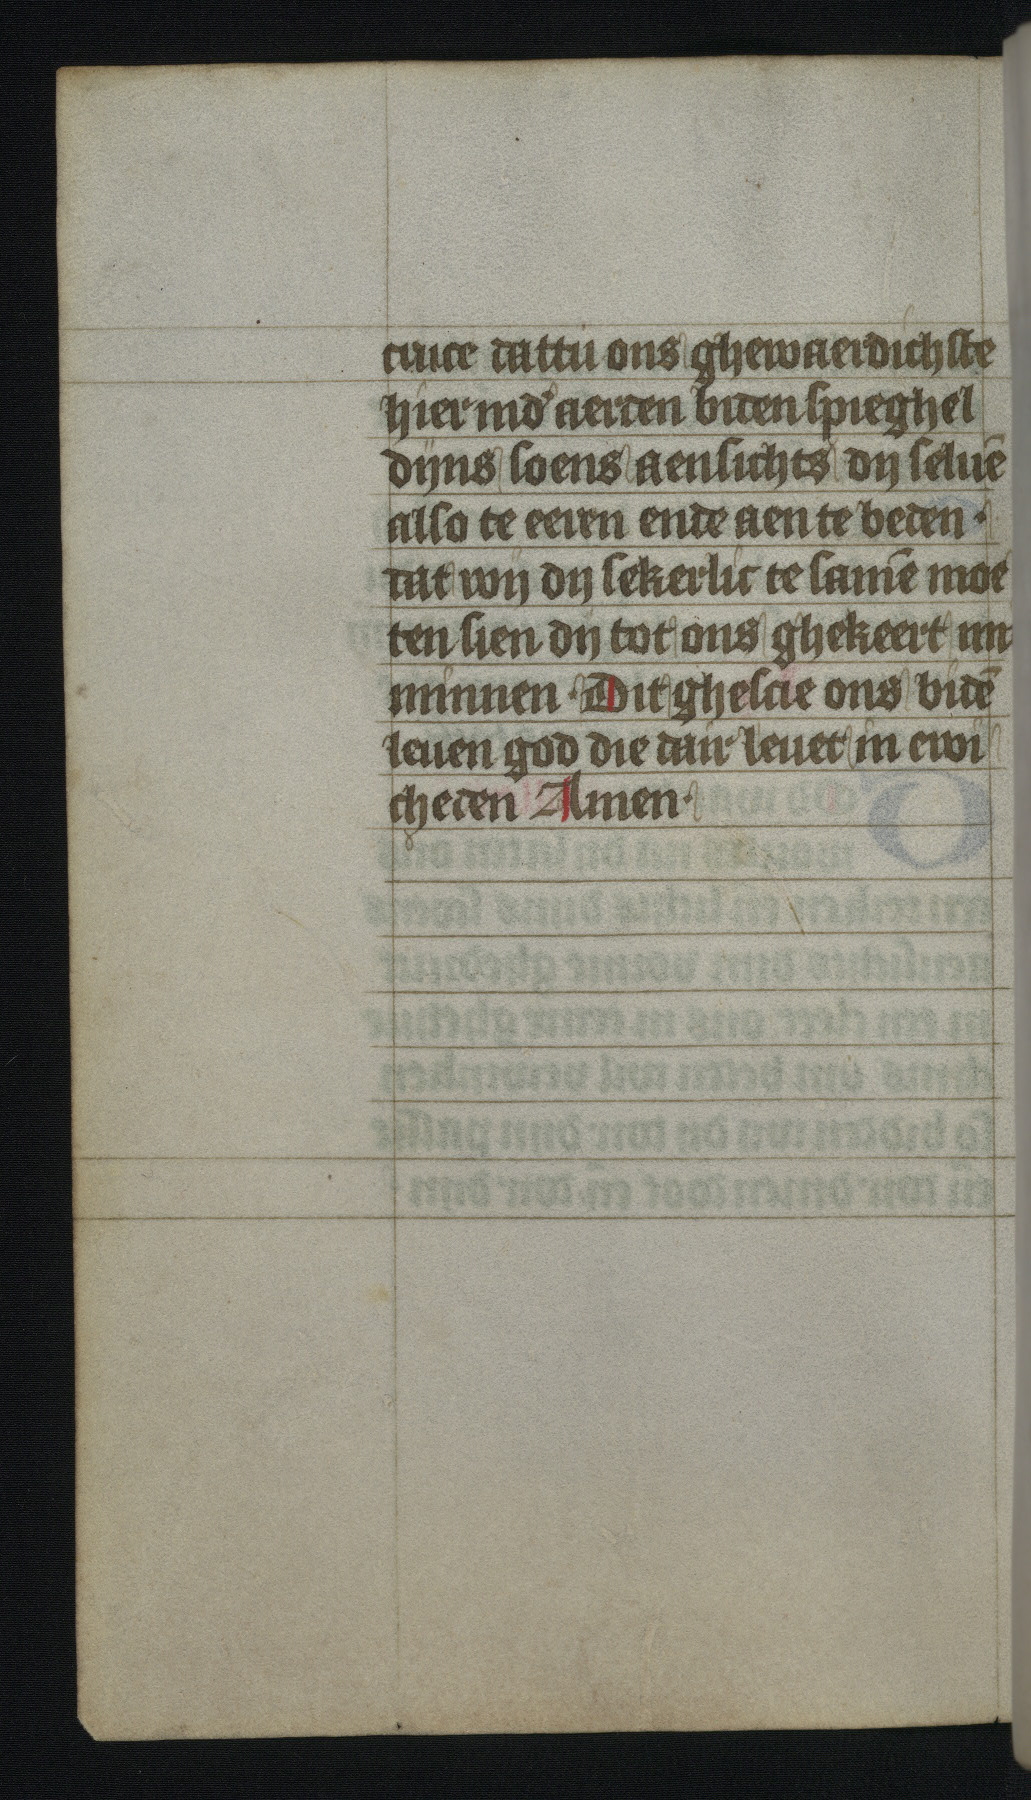 cruce dattu ons ghewaerdichste
hier ind' aerden biden spieghel
dijns soens aensichts dij seluē
also te eeren ende aen te beden ·
dat wij dij sekerlic te samē moe
ten sien dij tot ons ghekeert im
minnen · Dit ghescie ons bidē
leuen god die dair leuet in ewi
cheden Amen ·